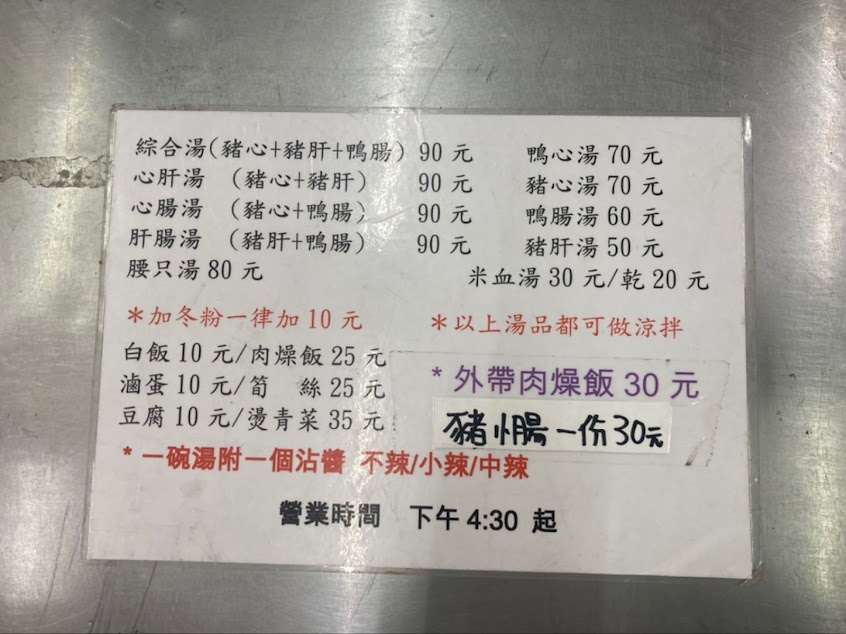 綜合湯(豬心+豬肝+鴨腸) 90 元 鴨心湯 70 元
心肝湯 (豬心+豬肝) 90 元 豬心湯 70 元
心腸湯 (豬心+鴨腸) 90 元 鴨腸湯 60 元
肝腸湯 (豬肝+鴨腸) 90 元 豬肝湯 50 元
腰只湯 80 元 米血湯 30 元/乾 20 元
*加冬粉一律加 10 元 *以上湯品都可做涼拌
白飯 10 元/肉燥飯 25 元
滷蛋 10 元/筍 絲 25 元
豆腐 10 元/燙青菜 35 元
* 外帶肉燥飯 30 元
豬小腸一份30元
* 一碗湯附一個沾醬 不辣/小辣/中辣
營業時間 下午 4:30 起